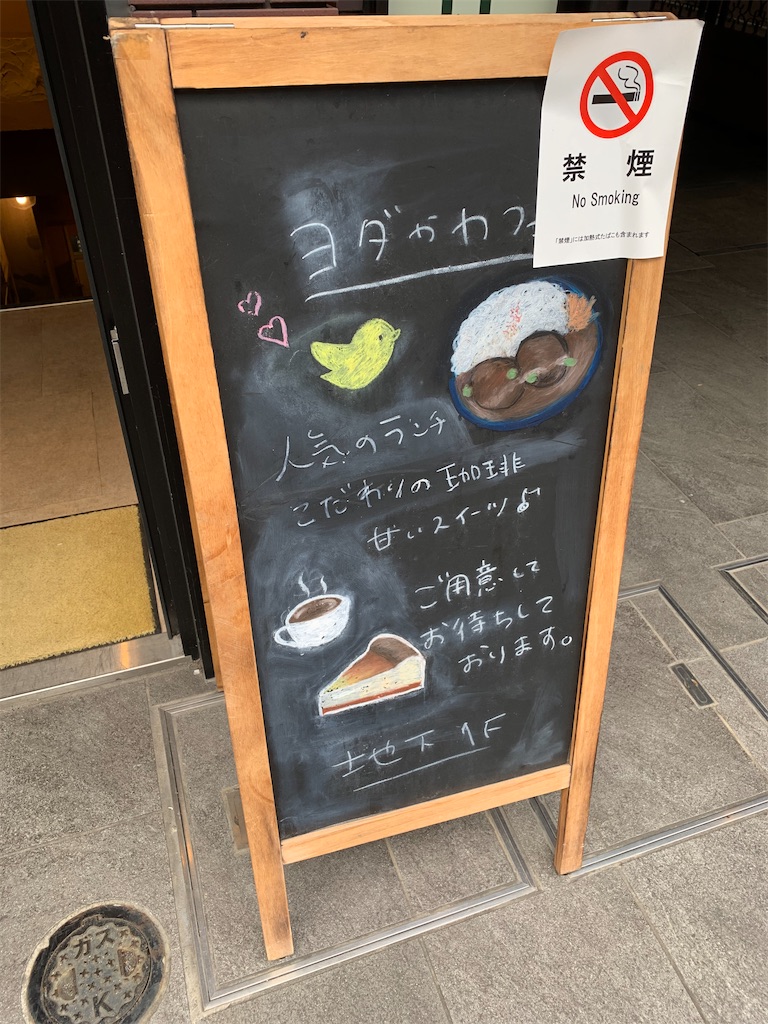 禁 煙
No Smoking
「禁煙」には加熱式たばこも含まれます
ヨダかわカフ
人気のランチ
こだわりの珈琲
甘いスイーツ♪
ご用意して
お待ちして
おります。
地下1F
ガス
K